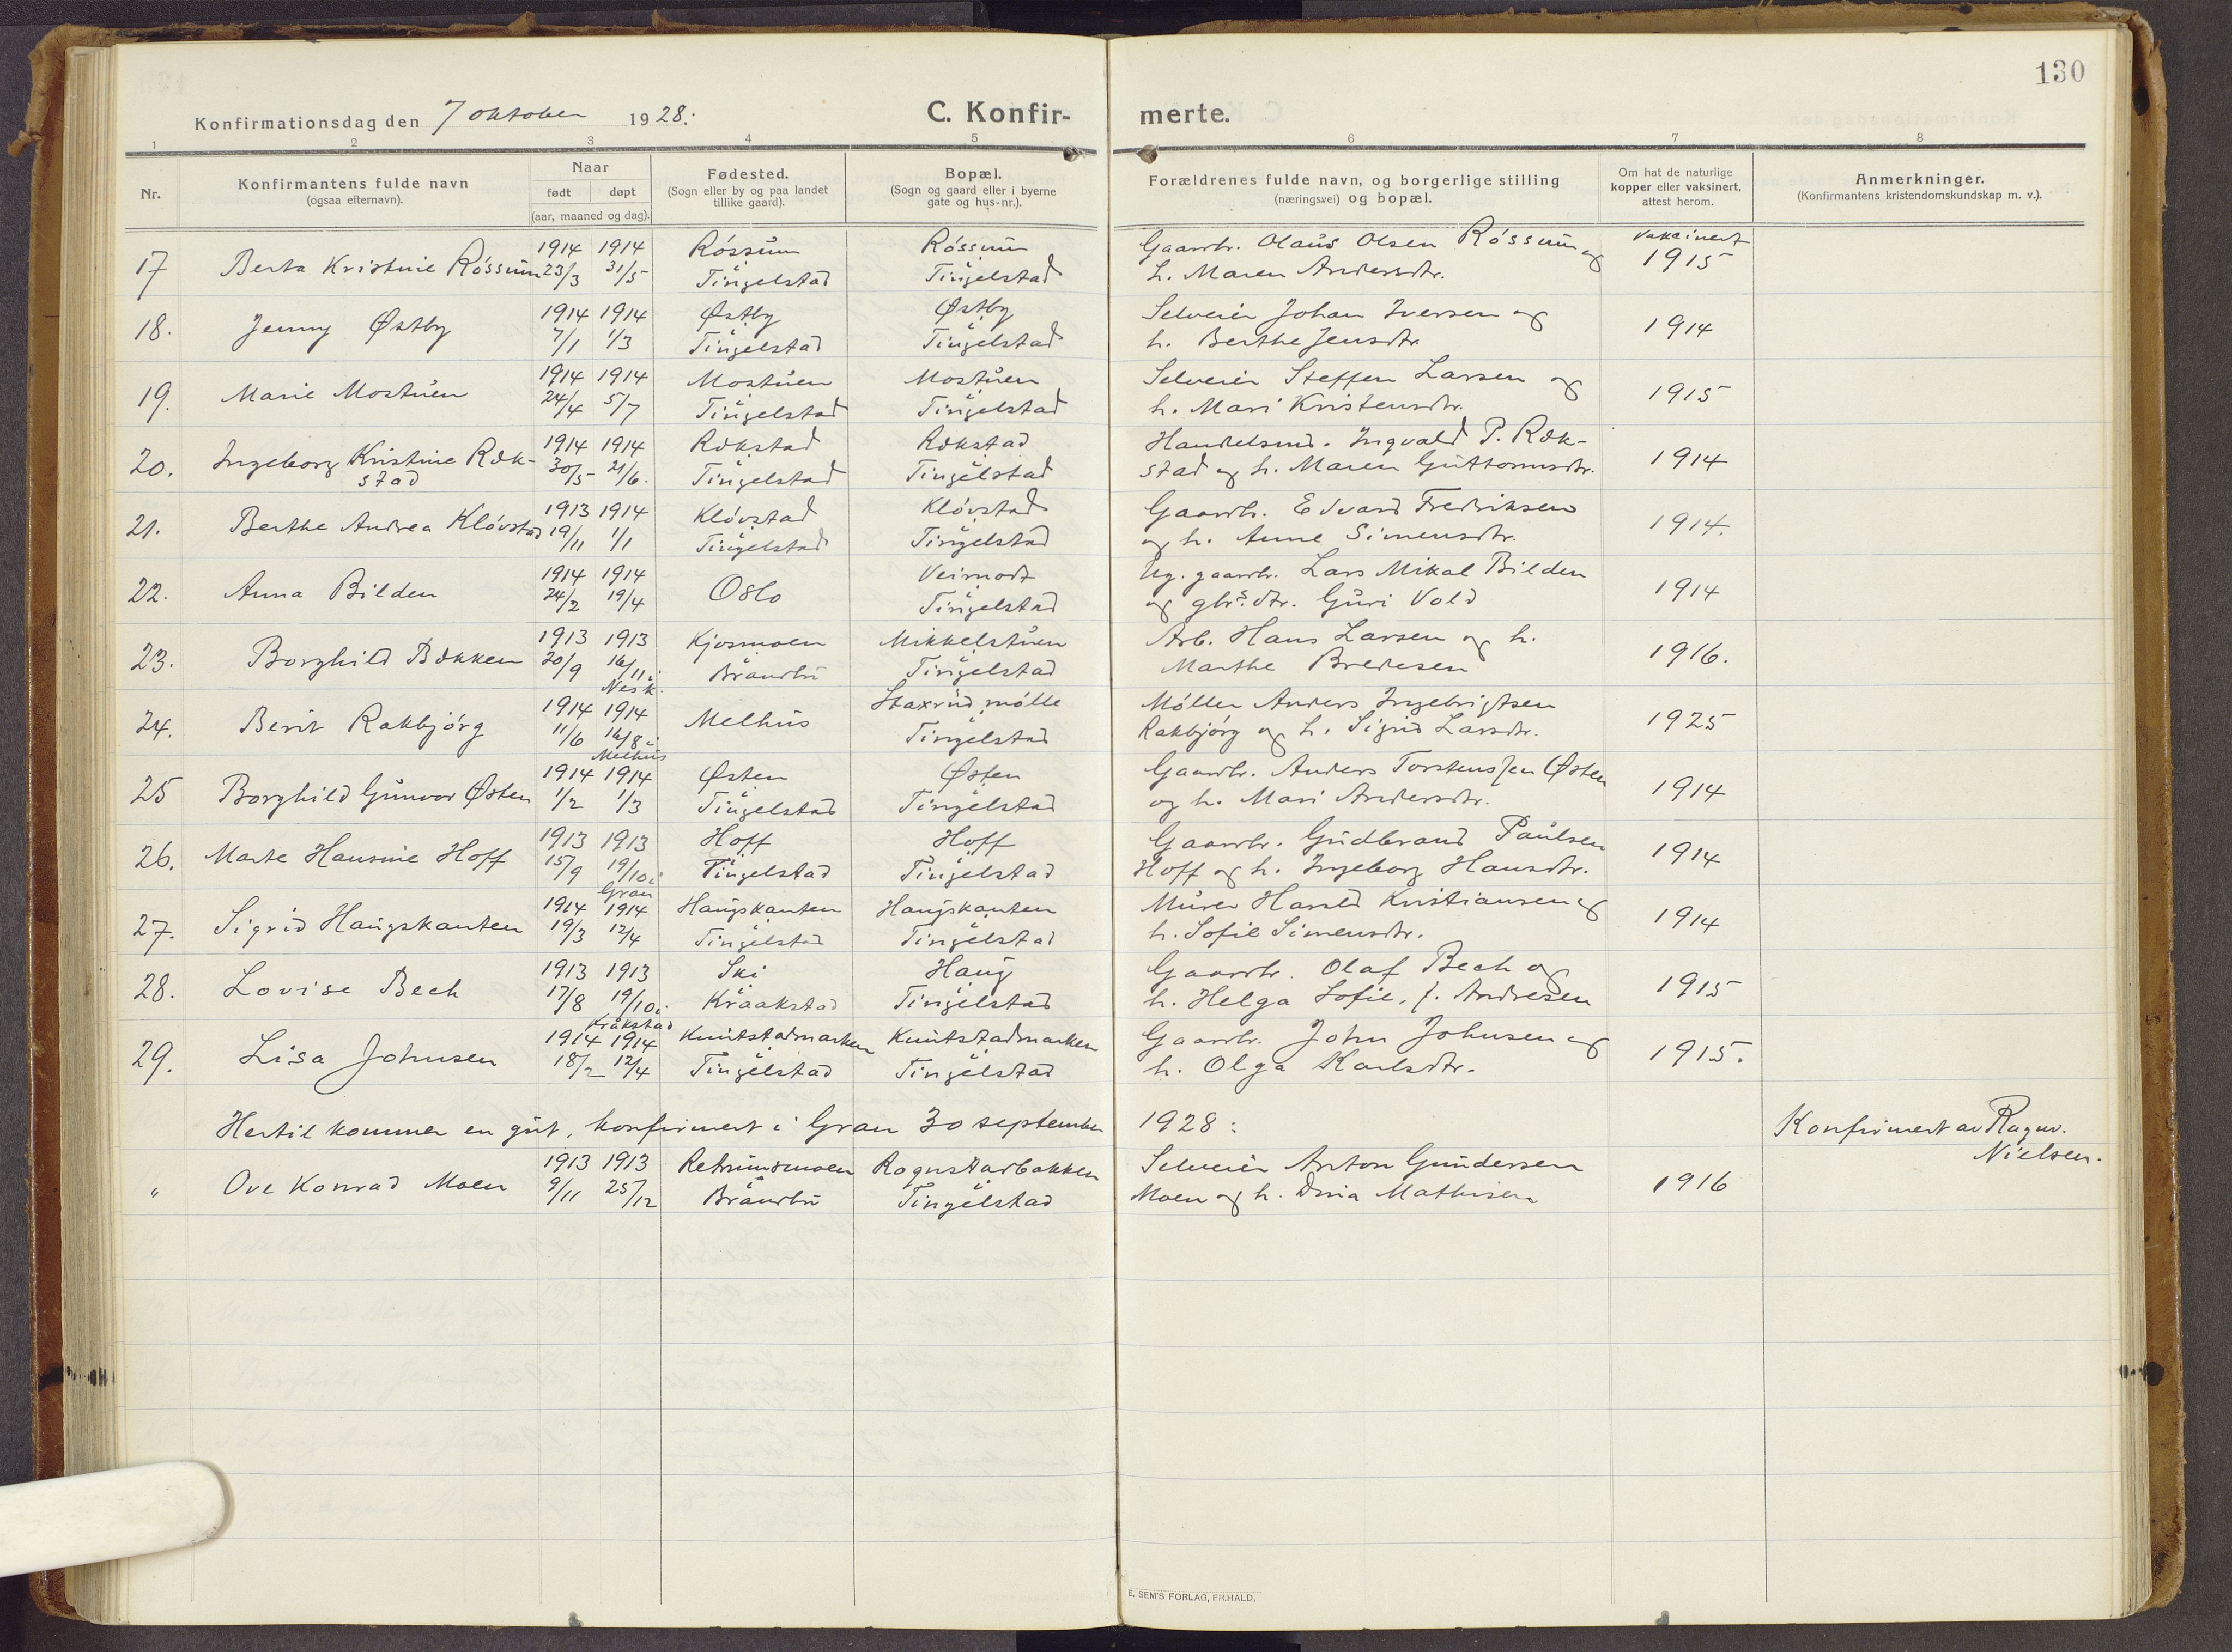 130
Konfirmationsdag den 7 oktober 1928. C. Konfir- merte.
1 2 3 4 5 6 7 8
Nr. Konfirmantens fulde navn (ogsaa efternavn). Naar født døpt (aar, maaned og dag). Fødested. (Sogn eller by og paa landet tillike gaard). Bopæl. (Sogn og gaard eller i byerne gate og hus-nr.). Forældrenes fulde navn, og borgerlige stilling (næringsvei) og bopæl. Om hat de naturlige kopper eller vaksinert, attest herom. Anmerkninger. (Konfirmantens kristendomskundskap m. v.).
1914 1914 Røssum Røssum Gaardbr. Olaus Olsen Røssum og vaksinert
17 Berta Kristine Røssum 23/3 31/5 Tingelstad Tingelstad h. Maren Andersdtr. 1915
1914 1914 Østby Østby Selveier Johan Iversen og
18. Jenny Østby 7/1 1/3 Tingelstad Tingelstad h. Berthe Jensdtr. 1914
1914 1914 Mostuen Mostuen Selveier Steffen Larsen og
19. Marie Mostuen 24/4 5/7 Tingelstad Tingelstad h. Mari Kristensdtr. 1915
20. Ingeborg Kristine Ræk- 1914 1914 Rækstad Rækstad Handelsmd. Ingvald P. Ræk-
stad 30/5 21/6. Tingelstad Tingelstad stad og h. Maren Guttormsdtr. 1914
1913 1914 Kløvstad Kløvstad Gaardbr. Edvard Fredriksen
21. Berthe Andrea Kløvstad 19/11 1/1 Tingelstad Tingelstad og h. Anne Simensdtr. 1914.
1914 1914 Veimodt Ug. gaardbr. Lars Mikal Bilden
22. Anna Bilden 24/2 19/4 Oslo Tingelstad og gbrs. dtr. Guri Vold 1914
1913 1913 Kjosmoen Mikkelstuen Arb. Hans Larsen og h.
23. Borghild Bækken 20/9 16/11 i Nesk. Brandbu Tingelstad Marthe Bredesen 1916.
1914 1914 Melhus Staxrud mølle Møller Anders Ingebrigtsen
24. Berit Rakbjørg 11/6 16/8 i Melhus Tingelstad Rakbjørg og h. Sigrid Larsdtr. 1925
1914 1914 Østen Østen Gaardbr. Anders Torstenssen Østen
25 Borghild Gunvor Østen 1/2 1/3 Tingelstad Tingelstad og h. Mari Andersdtr. 1914
1913 1913 Hoff Hoff Gaardbr. Gudbrand Paulsen
26. Marte Hansine Hoff 15/9 19/10 i Gran Tingelstad Tingelstad Hoff og h. Ingeborg Hansdtr. 1914
1914 1914 Haugskanten Haugskanten Murer Harald Kristiansen og
27. Sigrid Haugskanten 19/3 12/4 Tingelstad Tingelstad h. Sofie Simensdtr. 1914
1913 1913 Ski Haug Gaardbr. Olaf Bech og
28. Lovise Bech 17/8 19/10 i Kråkstad Kraakstad Tingelstad h. Helga Sofie, f. Andresen 1915
1914 1914 Knutstadmarken Knutstadmarken Gaardbr. John Johnsen og
29. Lisa Johnsen 18/2 12/4 Tingelstad Tingelstad h. Olga Karlsdtr. 1915.
Hertil kommer en gut, konfirmert i Gran 30 september 1928: Konfirmert av Ragnv. Nielsen.
1913 1913 Retrumsmoen Rognstadbakken Selveier Anton Gundersen
" Ove Konrad Moen 9/11 25/12 Brandbu Tingelstad Moen og h. Dina Mathisen 1916
E. SEM'S FORLAG, FR.HALD,